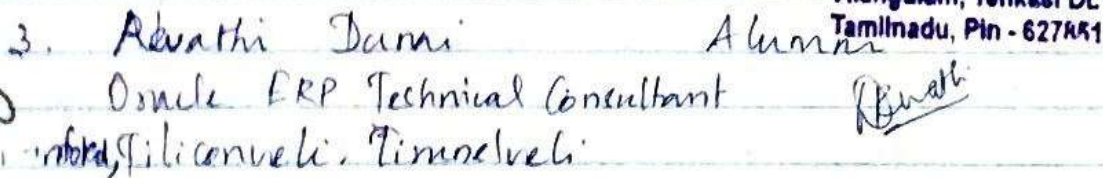 Tamilnadu, Pin - 627851
3. Revathi Durai Alumni
Oracle ERP Technical Consultant Revathi
Siliconveli. Tirunelveli